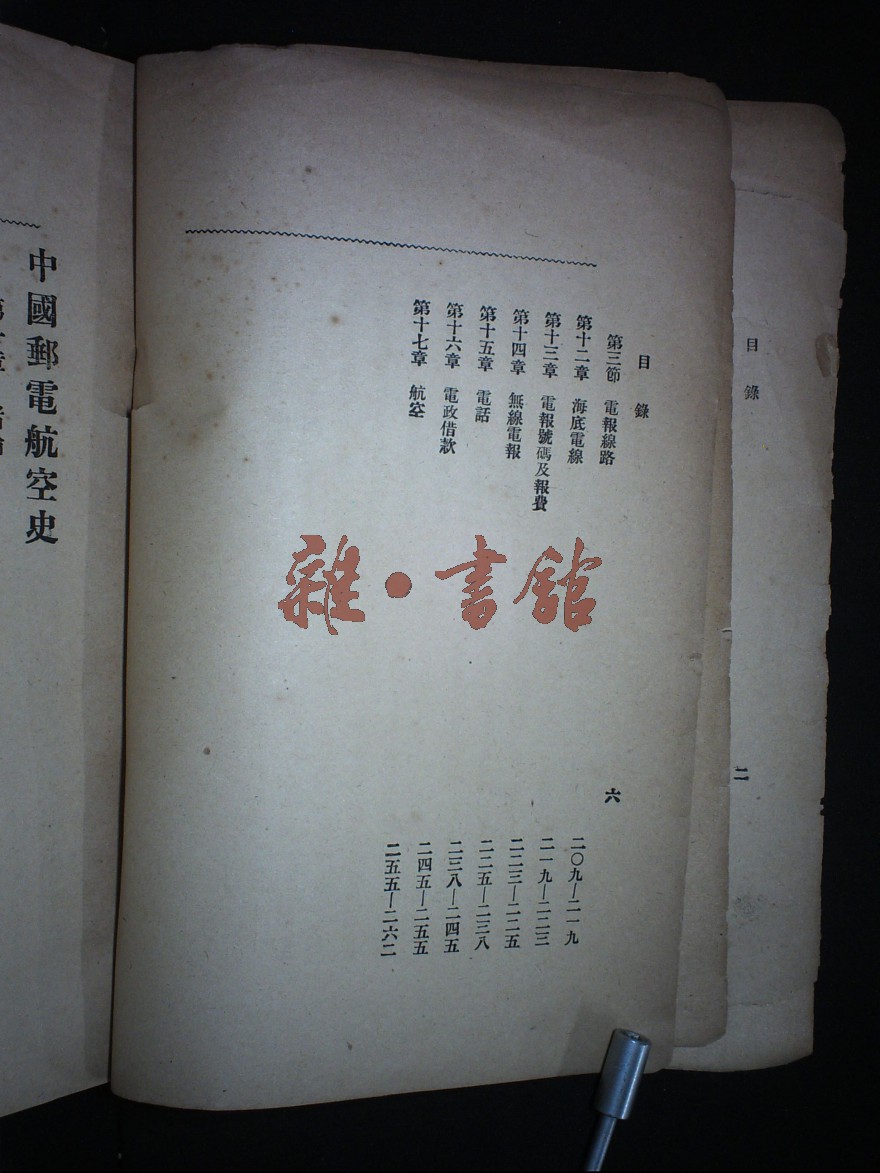 目錄
二
目錄
六
第三節 電報線路 二〇九—二一九
第十二章 海底電線 二一九—二二三
第十三章 電報號碼及報費 二二三—二二五
第十四章 無線電報 二二五—二三八
第十五章 電話 二三八—二四五
第十六章 電政借款 二四五—二五五
第十七章 航空 二五五—二六二
中國郵電航空史
雜·書館